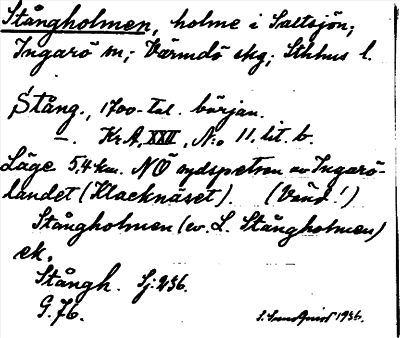 Stångholmen, holme i Saltsjön;
Ingarö sn; Värmdö skg; Sthlms l.
Stång., 1700-tal. början.
—. Kr.A, XXII, No 11. lit. b.
Läge 5,4 km. NÖ sydspetsen av Ingarö-
landet (Klacknäset). (Vänd!)
Stångholmen (ev. L. Stångholmen)
ek.
Stångh. Sj: 236.
G. 76.
1936.